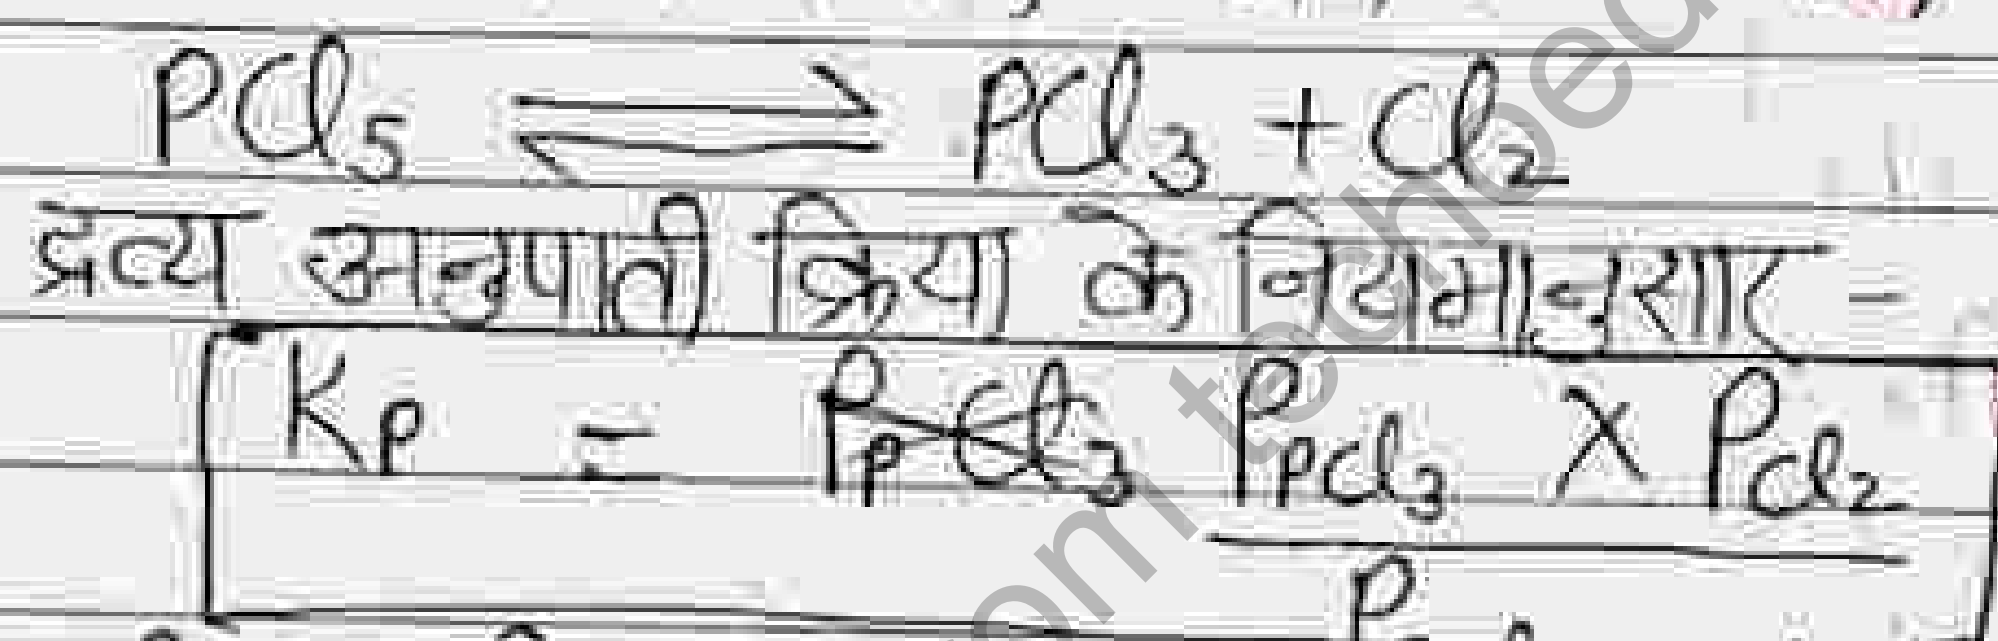 PCl₅ ⇌ PCl₃ + Cl₂
द्रव्य अनुपाती क्रिया के नियमानुसार -
Kp = P_PCl₃ × P_Cl₂
P
om techoed